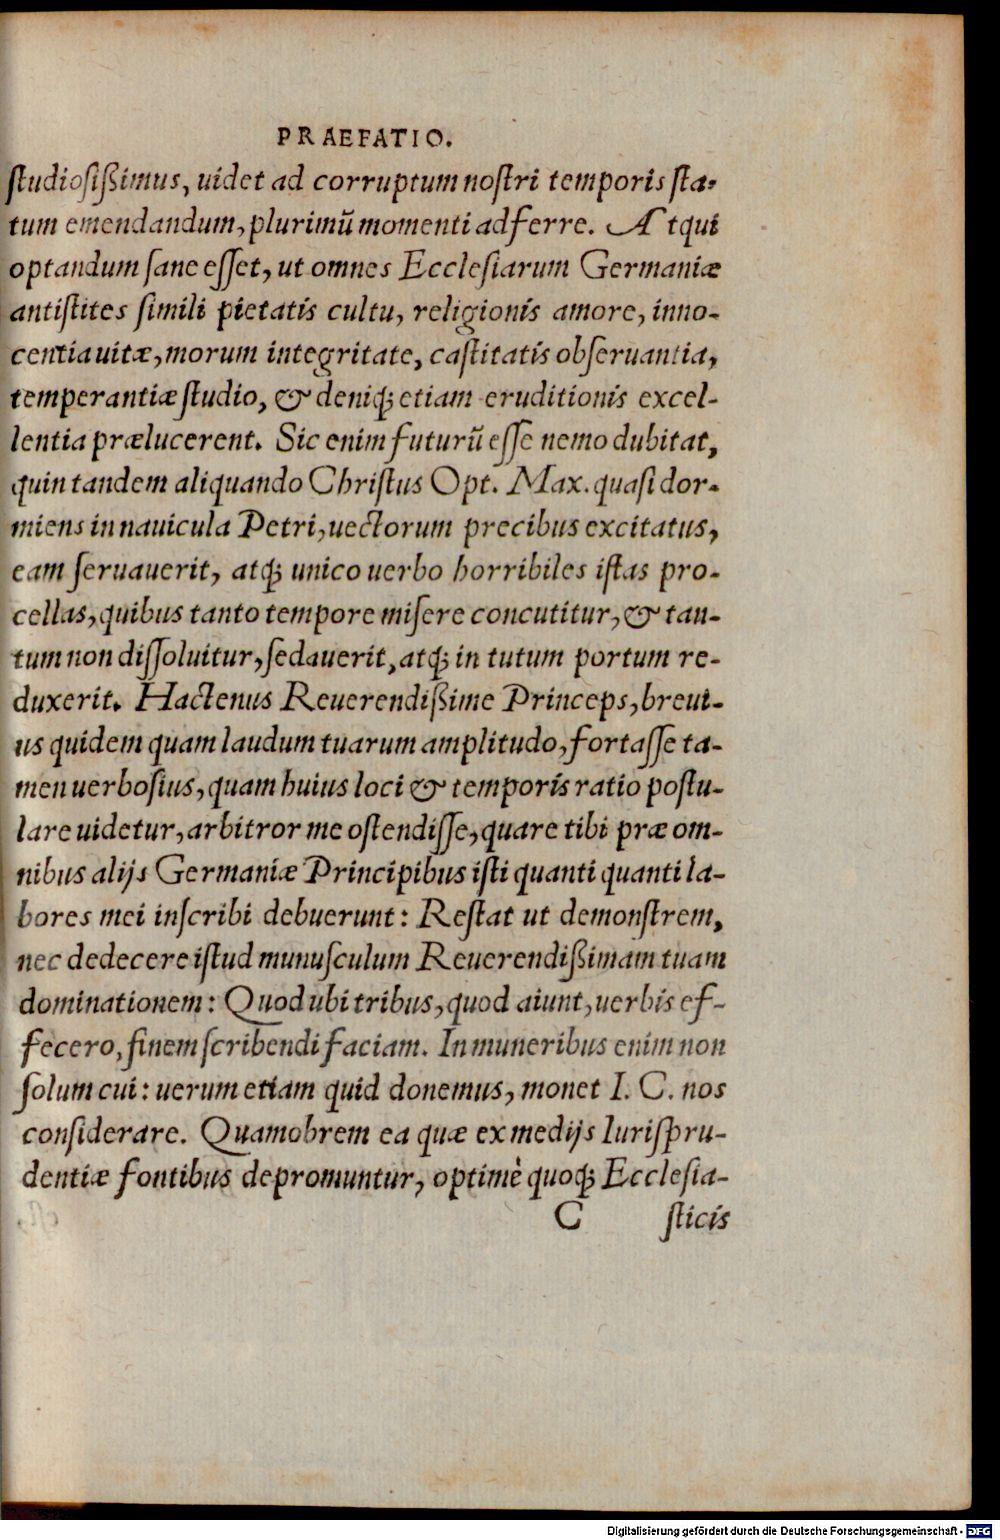 PRAEFATIO.
ſtudioſißimus, uidet ad corruptum noſtri temporis ſta-
tum emendandum, plurimū momenti adferre. Atqui
optandum ſane eſſet, ut omnes Eccleſiarum Germaniæ
antiſtites ſimili pietatis cultu, religionis amore, inno-
centia uitæ, morum integritate, caſtitatis obſeruantia,
temperantiæ ſtudio, & deniq; etiam eruditionis excel-
lentia prælucerent. Sic enim futurū eſſe nemo dubitat,
quin tandem aliquando Chriſtus Opt. Max. quaſi dor-
miens in nauicula Petri, uectorum precibus excitatus,
eam ſeruauerit, atq; unico uerbo horribiles iſtas pro-
cellas, quibus tanto tempore miſere concutitur, & tan-
tum non diſſoluitur, ſedauerit, atq; in tutum portum re-
duxerit. Hactenus Reuerendißime Princeps, breui-
us quidem quam laudum tuarum amplitudo, fortaſſe ta-
men uerboſius, quam huius loci & temporis ratio poſtu-
lare uidetur, arbitror me oſtendiſſe, quare tibi præ om-
nibus alijs Germaniæ Principibus iſti quanti quanti la-
bores mei inſcribi debuerunt: Reſtat ut demonſtrem,
nec dedecere iſtud munuſculum Reuerendißimam tuam
dominationem: Quod ubi tribus, quod aiunt, uerbis ef-
fecero, finem ſcribendi faciam. In muneribus enim non
ſolum cui: uerum etiam quid donemus, monet I. C. nos
conſiderare. Quamobrem ea quæ ex medijs Iuriſpru-
dentiæ fontibus depromuntur, optimè quoq; Eccleſia-
C ſticis
Digitalisierung gefördert durch die Deutsche Forschungsgemeinschaft - DFG